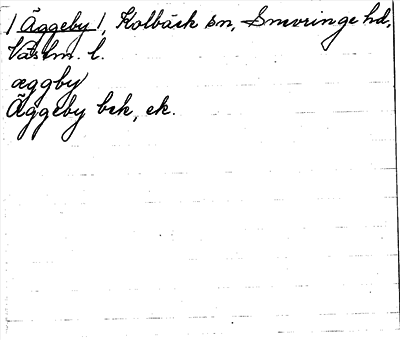 / Äggeby /, Kolbäck sn, Snevringe hd,
Västm. l.
æggby
Äggeby bek, ek.